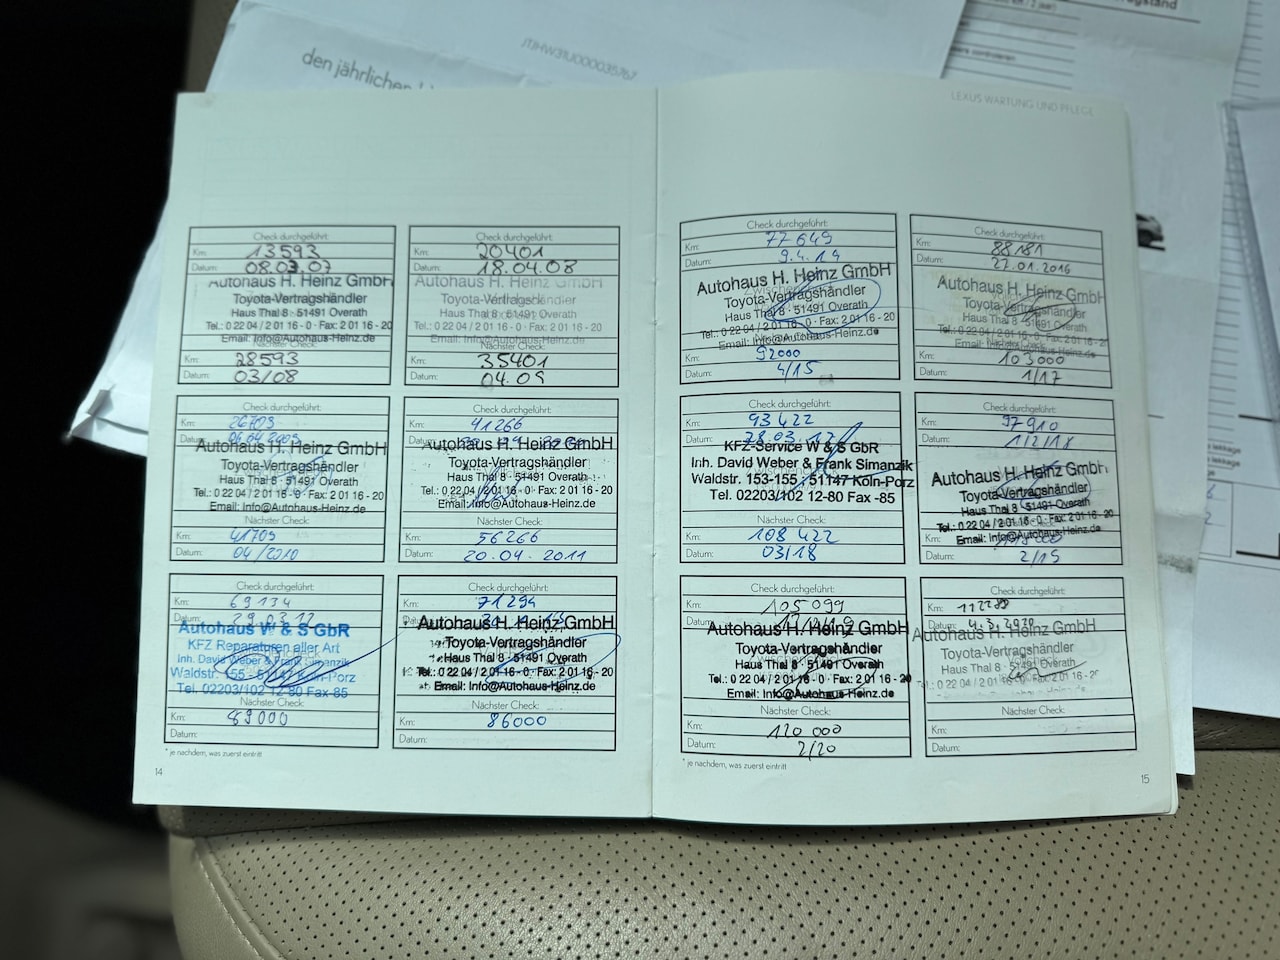 den jährlichen
JTJHW31U000035767
LEXUS WARTUNG UND PFLEGE
Check durchgeführt:
Km: 13593
Datum: 08.03.07
Autohaus H. Heinz GmbH
Toyota-Vertragshändler
Haus Thal 8 · 51491 Overath
Tel.: 0 22 04 / 2 01 16 - 0 · Fax: 2 01 16 - 20
Email: Info@Autohaus-Heinz.de
Nächster Check:
Km: 28593
Datum: 03/08
Check durchgeführt:
Km: 20401
Datum: 18.04.08
Autohaus H. Heinz GmbH
Toyota-Vertragshändler
Haus Thal 8 · 51491 Overath
Tel.: 0 22 04 / 2 01 16 - 0 · Fax: 2 01 16 - 20
Email: Info@Autohaus-Heinz.de
Nächster Check:
Km: 35401
Datum: 04.09
Check durchgeführt:
Km: 26709
Datum: 06.04.2009
Autohaus H. Heinz GmbH
Toyota-Vertragshändler
Haus Thal 8 · 51491 Overath
Tel.: 0 22 04 / 2 01 16 - 0 · Fax: 2 01 16 - 20
Email: Info@Autohaus-Heinz.de
Nächster Check:
Km: 41709
Datum: 04/2010
Check durchgeführt:
Km: 41266
Datum:
Autohaus H. Heinz GmbH
Toyota-Vertragshändler
Haus Thal 8 · 51491 Overath
Tel.: 0 22 04 / 2 01 16 - 0 · Fax: 2 01 16 - 20
Email: Info@Autohaus-Heinz.de
Nächster Check:
Km: 56266
Datum: 20.04.2011
Check durchgeführt:
Km: 69134
Datum: 29.03.12
Autohaus W & S GbR
KFZ Reparaturen aller Art
Inh. David Weber & Frank Simanzik
Waldstr. 155 - 51147 Köln-Porz
Tel. 02203/102 12 80 Fax 85
Nächster Check:
Km: 89000
Datum:
Check durchgeführt:
Km: 71294
Datum:
Autohaus H. Heinz GmbH
Toyota-Vertragshändler
Haus Thal 8 · 51491 Overath
Tel.: 0 22 04 / 2 01 16 - 0 · Fax: 2 01 16 - 20
Email: Info@Autohaus-Heinz.de
Nächster Check:
Km: 86000
Datum:
* je nachdem, was zuerst eintritt
14
Check durchgeführt:
Km: 77649
Datum: 9.4.14
Autohaus H. Heinz GmbH
Toyota-Vertragshändler
Haus Thal 8 · 51491 Overath
Tel.: 0 22 04 / 2 01 16 - 0 · Fax: 2 01 16 - 20
Email: Info@Autohaus-Heinz.de
Km: 92000
Datum: 4/15
Check durchgeführt:
Km: 88181
Datum: 22.01.2016
Autohaus H. Heinz GmbH
Toyota-Vertragshändler
Haus Thal 8 · 51491 Overath
Tel.: 0 22 04 / 2 01 16 - 0 · Fax: 2 01 16 - 20
Km: 103000
Datum: 1/17
Check durchgeführt:
Km: 93422
Datum: 28.03.17
KFZ-Service W & S GbR
Inh. David Weber & Frank Simanzik
Waldstr. 153-155 · 51147 Köln-Porz
Tel. 02203/102 12-80 Fax -85
Nächster Check:
Km: 108422
Datum: 03/18
Check durchgeführt:
Km: 97910
Datum: 1/2/18
Autohaus H. Heinz GmbH
Toyota-Vertragshändler
Haus Thal 8 · 51491 Overath
Tel.: 0 22 04 / 2 01 16 - 0 · Fax: 2 01 16 - 20
Email: Info@Autohaus-Heinz.de
Datum: 2/19
Check durchgeführt:
Km: 105099
Datum:
Autohaus H. Heinz GmbH
Toyota-Vertragshändler
Haus Thal 8 · 51491 Overath
Tel.: 0 22 04 / 2 01 16 - 0 · Fax: 2 01 16 - 20
Email: Info@Autohaus-Heinz.de
Nächster Check:
Km: 120 000
Datum: 2/20
Check durchgeführt:
Km:
Datum: 4.3.2020
Autohaus H. Heinz GmbH
Toyota-Vertragshändler
Haus Thal 8 · 51491 Overath
0 22 04 / 2 01 16 - 0 · Fax: 2 01 16 - 20
Nächster Check:
Km:
Datum:
* je nachdem, was zuerst eintritt
15